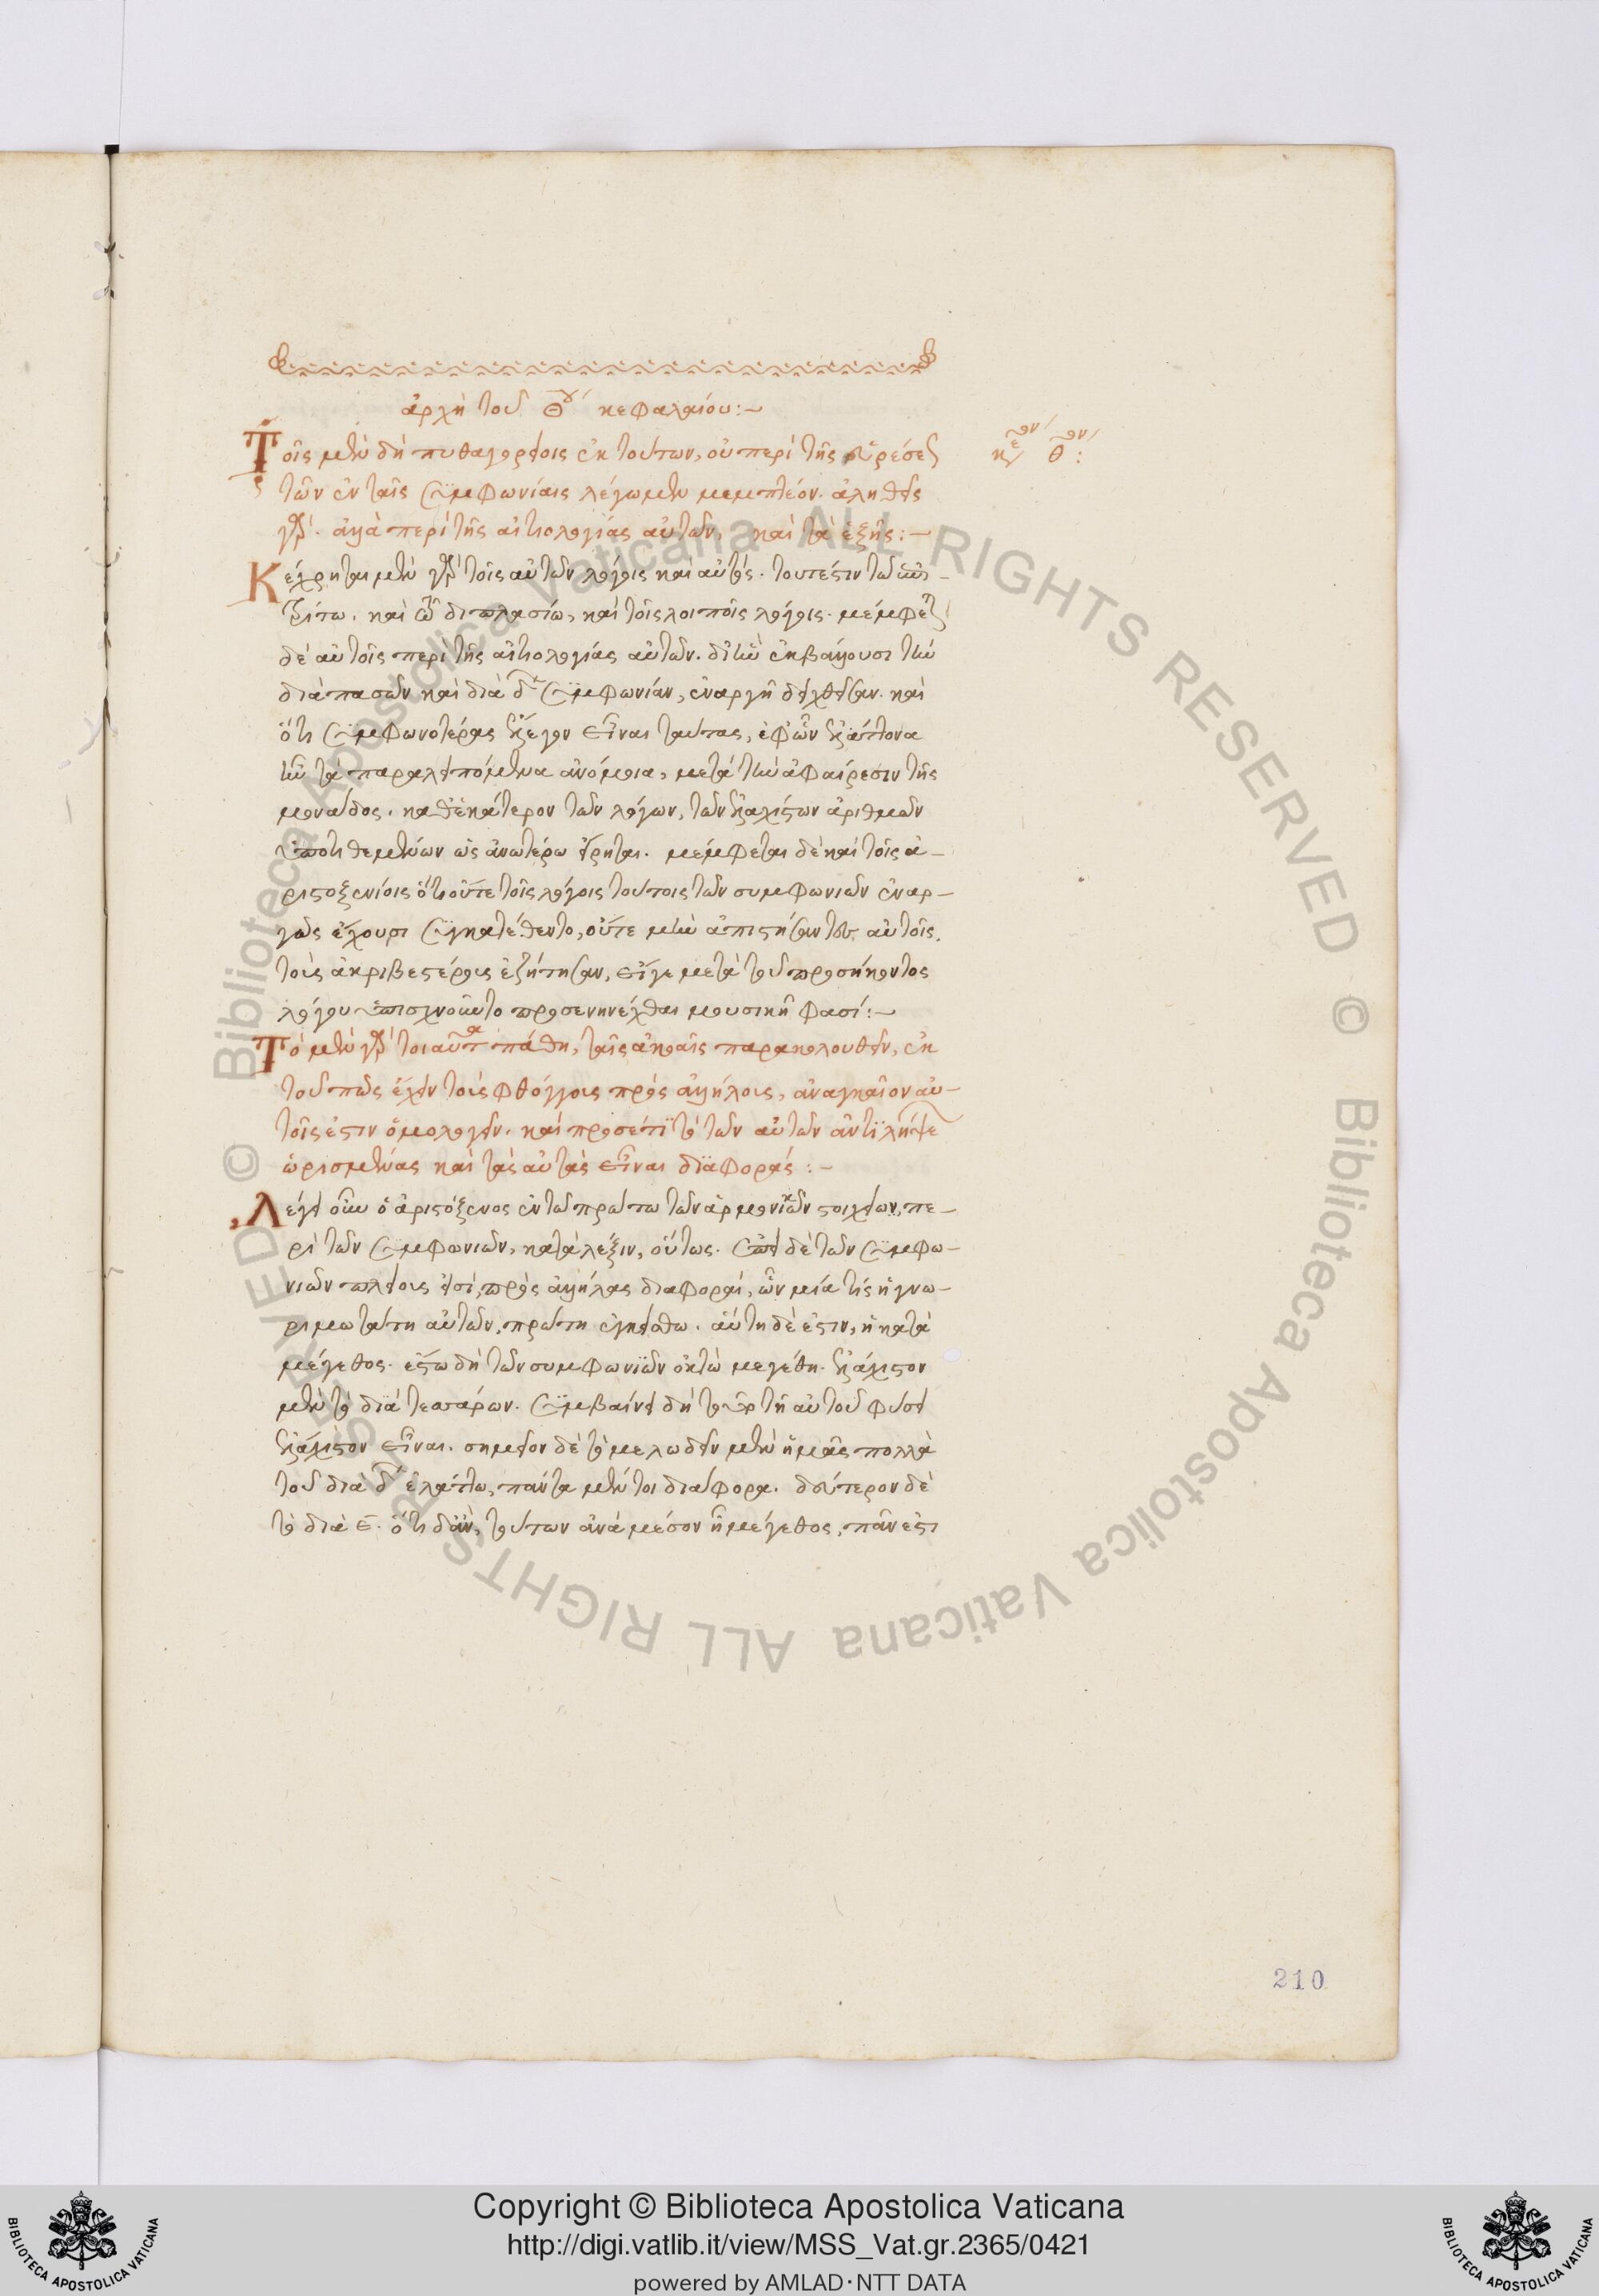 ἀρχὴ τοῦ Θου κεφαλαίου:~
Τοῖς μὲν δὴ πυθαγορείοις ἐκ τούτων, οὐ περὶ τῆς εὑρέσεως
κεον θον:
τῶν ἐν ταῖς συμφωνίαις λέγωμεν μεμπτέον. ἀληθὲς
γάρ. ἀλλὰ περὶ τῆς αἰτιολογίας αὐτῶν, καὶ τὰ ἑξῆς:~
Κέχρηται μὲν γὰρ τοῖς αὐτῶν λόγοις καὶ αὐτός. τουτέστιν τῶ ἐπι-
τρίτω. καὶ τῶ διπλασίω, καὶ τοῖς λοιποῖς λόγοις. μέμφεται
δὲ αὐτοῖς περὶ τῆς αἰτιολογίας αὐτῶν. δι' ἣν ἐκβάλλουσι τὴν
διὰ πασῶν καὶ διὰ δ συμφωνίαν, ἐναργῆ δειχθεῖσαν. καὶ
ὅτι συμφωνοτέρας ἔλεγον εἶναι ταύτας, ἐφ' ὧν ἐλάττονα
ἦν τὰ παραλειπόμενα ἀνόμοια, μετὰ τὴν ἀφαίρεσιν τῆς
μονάδος. καθ' ἑκάτερον τῶν λόγων, τῶν ἐλαχίστων ἀριθμῶν
ὑποτιθεμένων ὡς ἀνωτέρω εἴρηται. μέμφεται δὲ καὶ τοῖς ἀ-
ριστοξενίοις ὅτι οὔτε τοῖς λόγοις τούτοις τῶν συμφωνιῶν ἐναρ-
γῶς ἔχουσι συγκατέθεντο, οὔτε μὴν ἀπιστήσαντες αὐτοῖς,
τοὺς ἀκριβεστέρους ἐζήτησαν, εἴγε μετὰ τοῦ προσήκοντος
λόγου ὑπισχνοῦντο προσενηνέχθαι μουσικῆ φασί:~
Τὸ μὲν γὰρ τοιαῦτα πάθη, ταῖς ἀκοαῖς παρακολουθεῖν, ἐκ
τοῦ πῶς ἔχειν τοὺς φθόγγους πρὸς ἀλλήλους, ἀναγκαῖον αὐ-
τοῖς ἐστιν ὁμολογεῖν. καὶ προσέτι τὸ τῶν αὐτῶν ἀντιλήψεων
ὡρισμένας καὶ τὰς αὐτὰς εἶναι διαφοράς:~
Λέγει οὖν ὁ ἀριστόξενος ἐν τῶ πρώτω τῶν ἁρμονικῶν στοιχείων, πε-
ρὶ τῶν συμφωνιῶν, κατὰ λέξιν, οὕτως. ἐπεὶ δὲ τῶν συμφω-
νιῶν πλείους εἰσὶ πρὸς ἀλλήλας διαφοραί, ὧν μία τίς ἡ γνω-
ριμωτάτη αὐτῶν, πρώτη ἐγκείσθω. αὕτη δέ ἐστιν, ἡ κατὰ
μέγεθος. ἔστω δὴ τῶν συμφωνιῶν ὀκτὼ μεγέθη. ἐλάχιστον
μὲν τὸ διὰ τεσσάρων. συμβαίνει δὴ τοῦτο τῆ αὐτοῦ φύσει
ἐλάχιστον εἶναι. σημεῖον δὲ τὸ μελωδεῖν μὲν ἡμᾶς πολλὰ
τοῦ διὰ δ ἐλάττω, πάντα μέντοι διάφορα. δεύτερον δὲ
τὸ διὰ ε. ὅτι δἂν, τούτων ἀνάμέσον ἦ μέγεθος, πᾶν ἐστι
210
© Biblioteca Apostolica Vaticana ALL RIGHTS RESERVED © Biblioteca Apostolica Vaticana ALL RIGHTS RESERVED
Copyright © Biblioteca Apostolica Vaticana
http://digi.vatlib.it/view/MSS_Vat.gr.2365/0421
powered by AMLAD·NTT DATA
BIBLIOTECA APOSTOLICA VATICANA
BIBLIOTECA APOSTOLICA VATICANA